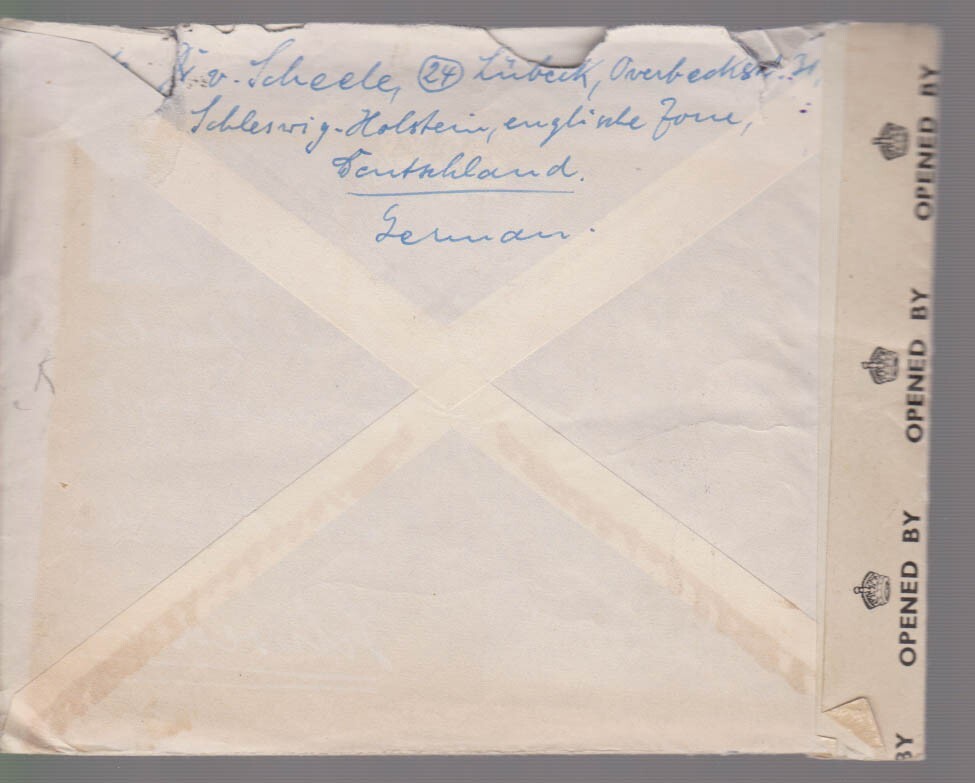 v. Scheele, 24 Lübeck, Overbeckstr.
Schleswig-Holstein, englische Zone,
Deutschland.
German.
OPENED BY
OPENED BY
OPENED BY
BY